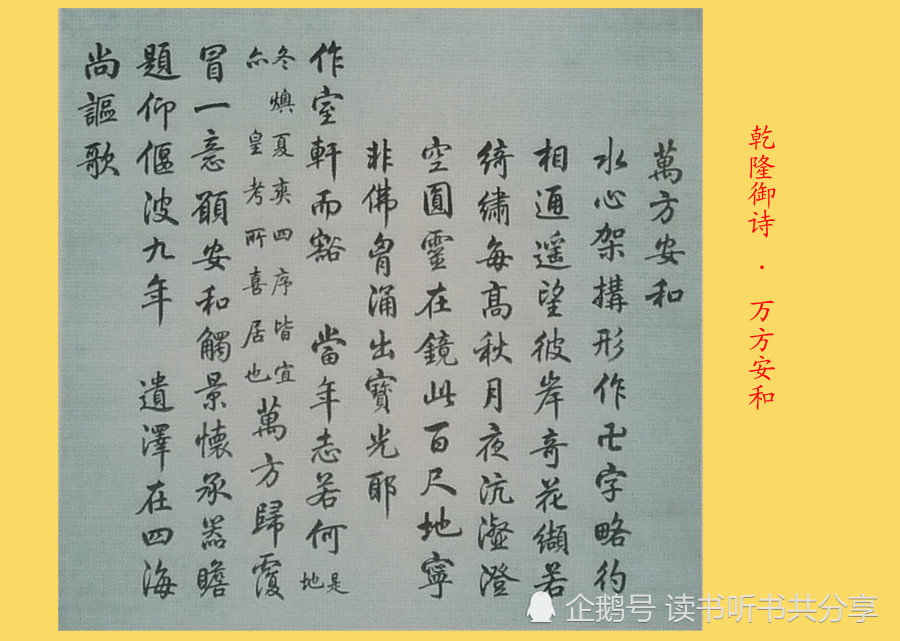 乾隆御诗 · 万方安和
萬方安和
水心架構形作卍字略彴
相通遥望彼岸奇花纈若
綺繡每高秋月夜沆瀣澄
空圓靈在鏡此百尺地寧
非佛胷涌出寶光耶
作室軒而豁 當年志若何 是地
冬燠夏爽四序皆宜
亦皇考所喜居也 萬方歸覆
冒一意願安和觸景懷承器瞻
題仰偃波九年 遺澤在四海
尚謳歌
企鹅号 读书听书共分享